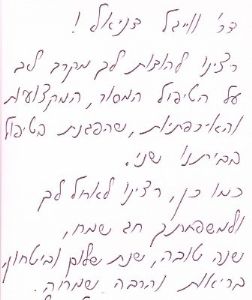 דר' ווייגל דניאל!
רצינו להודות לך מקרב לב
על הטיפול המסור, המקצועיות
והאיכפתיות, שהפגנת בטיפול
בביתנו שני.
כמו כן, רצינו לאחל לך
ולמשפחתך חג שמח,
שנה טובה, שנת שלום וביטחון,
בריאות והרבה שמחה.